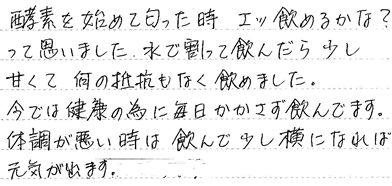 酵素を始めて匂った時 エッ飲めるかな?
って思いました。水で割って飲んだら少し
甘くて何の抵抗もなく飲めました。
今では健康の為に毎日かかさず飲んでます。
体調が悪い時は飲んで少し横になれば
元気が出ます。